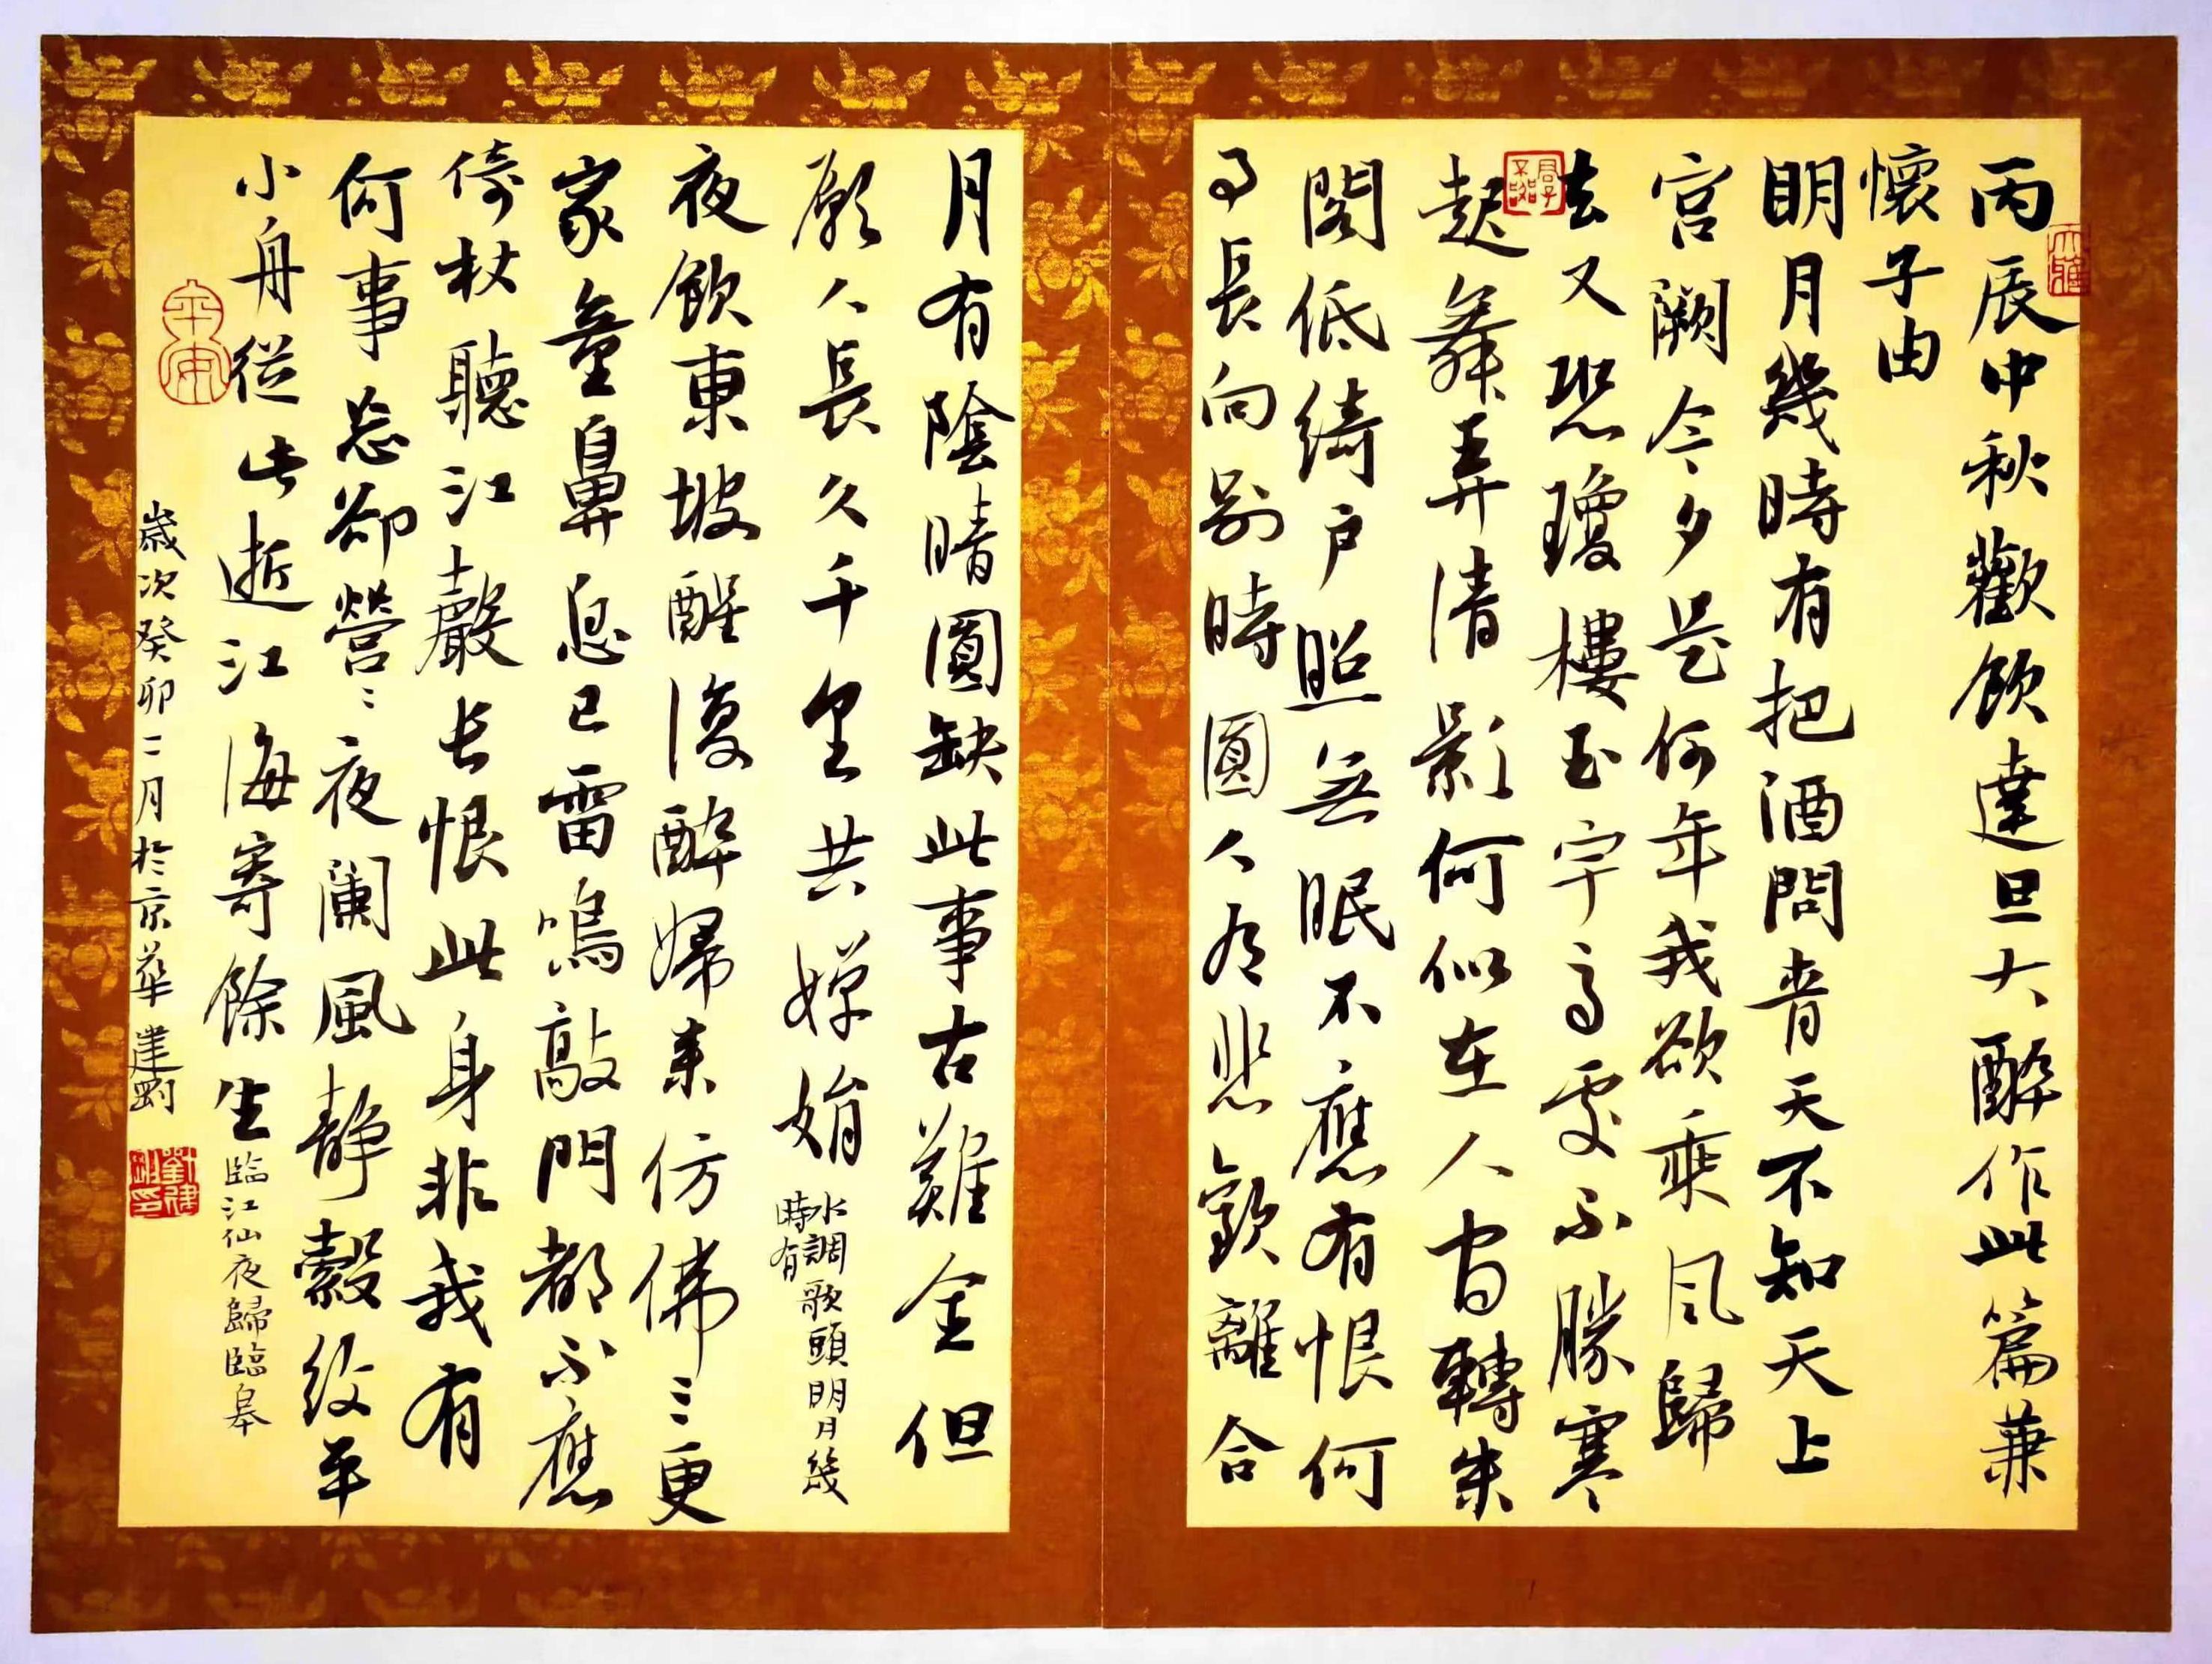 丙辰中秋歡飲達旦大醉作此篇兼
懷子由
明月幾時有把酒問青天不知天上
宮闕今夕是何年我欲乘风歸
去又恐瓊樓玉宇高處不勝寒
起舞弄清影何似在人間轉朱
閣低綺戶照無眠不應有恨何
事長向別時圓人有悲歡離合
月有陰晴圓缺此事古難全但
願人長久千里共嬋娟
水調歌頭明月幾
時有
夜飲東坡醒復醉歸來仿佛三更
家童鼻息已雷鳴敲門都不應
倚杖聽江聲長恨此身非我有
何事忘卻營〻夜闌風靜縠紋平
小舟從此逝江海寄餘生
臨江仙夜歸臨皋
歲次癸卯二月於京華建剛
平安
劉建剛印